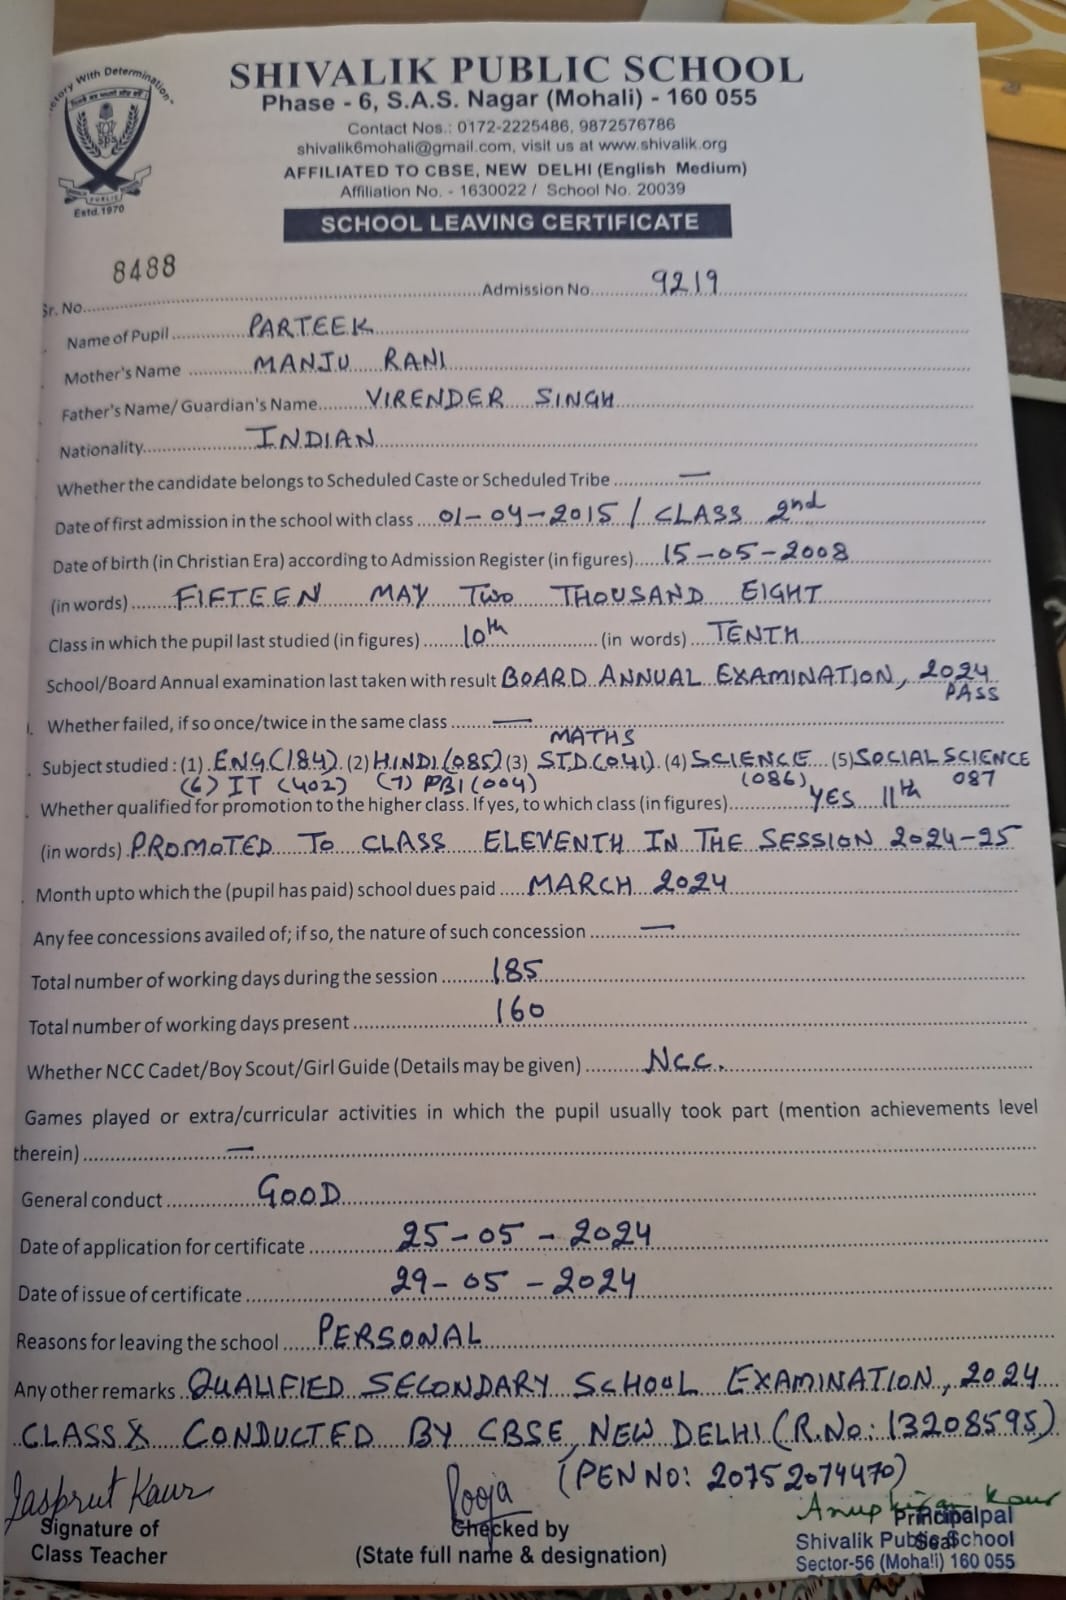 Victory With Determination
sps
PUBLIC
Estd. 1970
SHIVALIK PUBLIC SCHOOL
Phase - 6, S.A.S. Nagar (Mohali) - 160 055
Contact Nos.: 0172-2225486, 9872576786
shivalik6mohali@gmail.com, visit us at www.shivalik.org
AFFILIATED TO CBSE, NEW DELHI (English Medium)
Affiliation No. - 1630022 / School No. 20039
SCHOOL LEAVING CERTIFICATE
Sr. No. 8488 Admission No. 9219
Name of Pupil PARTEEK
Mother's Name MANJU RANI
Father's Name/ Guardian's Name VIRENDER SINGH
Nationality INDIAN
Whether the candidate belongs to Scheduled Caste or Scheduled Tribe —
Date of first admission in the school with class 01-04-2015 / CLASS 2nd
Date of birth (in Christian Era) according to Admission Register (in figures) 15-05-2008
(in words) FIFTEEN MAY TWO THOUSAND EIGHT
Class in which the pupil last studied (in figures) 10th (in words) TENTH
School/Board Annual examination last taken with result BOARD ANNUAL EXAMINATION, 2024
PASS
Whether failed, if so once/twice in the same class —
MATHS
Subject studied : (1) ENG(184) (2) HINDI(085) (3) STD.(041). (4) SCIENCE (5) SOCIAL SCIENCE
(6) IT (402) (7) PBI (004) (086) 087
Whether qualified for promotion to the higher class. If yes, to which class (in figures) YES 11th
(in words) PROMOTED TO CLASS ELEVENTH IN THE SESSION 2024-25
Month upto which the (pupil has paid) school dues paid MARCH 2024
Any fee concessions availed of; if so, the nature of such concession —
Total number of working days during the session 185
Total number of working days present 160
Whether NCC Cadet/Boy Scout/Girl Guide (Details may be given) NCC.
Games played or extra/curricular activities in which the pupil usually took part (mention achievements level
therein) —
General conduct GOOD
Date of application for certificate 25-05-2024
Date of issue of certificate 29-05-2024
Reasons for leaving the school PERSONAL
Any other remarks QUALIFIED SECONDARY SCHOOL EXAMINATION, 2024
CLASS X CONDUCTED BY CBSE, NEW DELHI (R.No: 13208595)
(PEN NO: 20752074470)
Jasprut Kaur Pooja Anupkiran Kaur
Signature of Checked by Principal
Class Teacher (State full name & designation) Seal
Principal
Shivalik Public School
Sector-56 (Mohali) 160 055